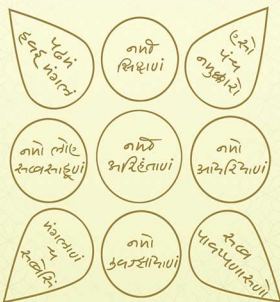 પઢમં
હવઈ મંગલં
નમો
સિદ્ધાણં
એસો
પંચ
નમુક્કારો
નમો લોએ
સવ્વસાહૂણં
નમો
અરિહંતાણં
નમો
આયરિયાણં
મંગલાણં
ચ
સવ્વેસિં
નમો
ઉવજ્ઝાયાણં
સવ્વ
પાવપ્પણાસણો